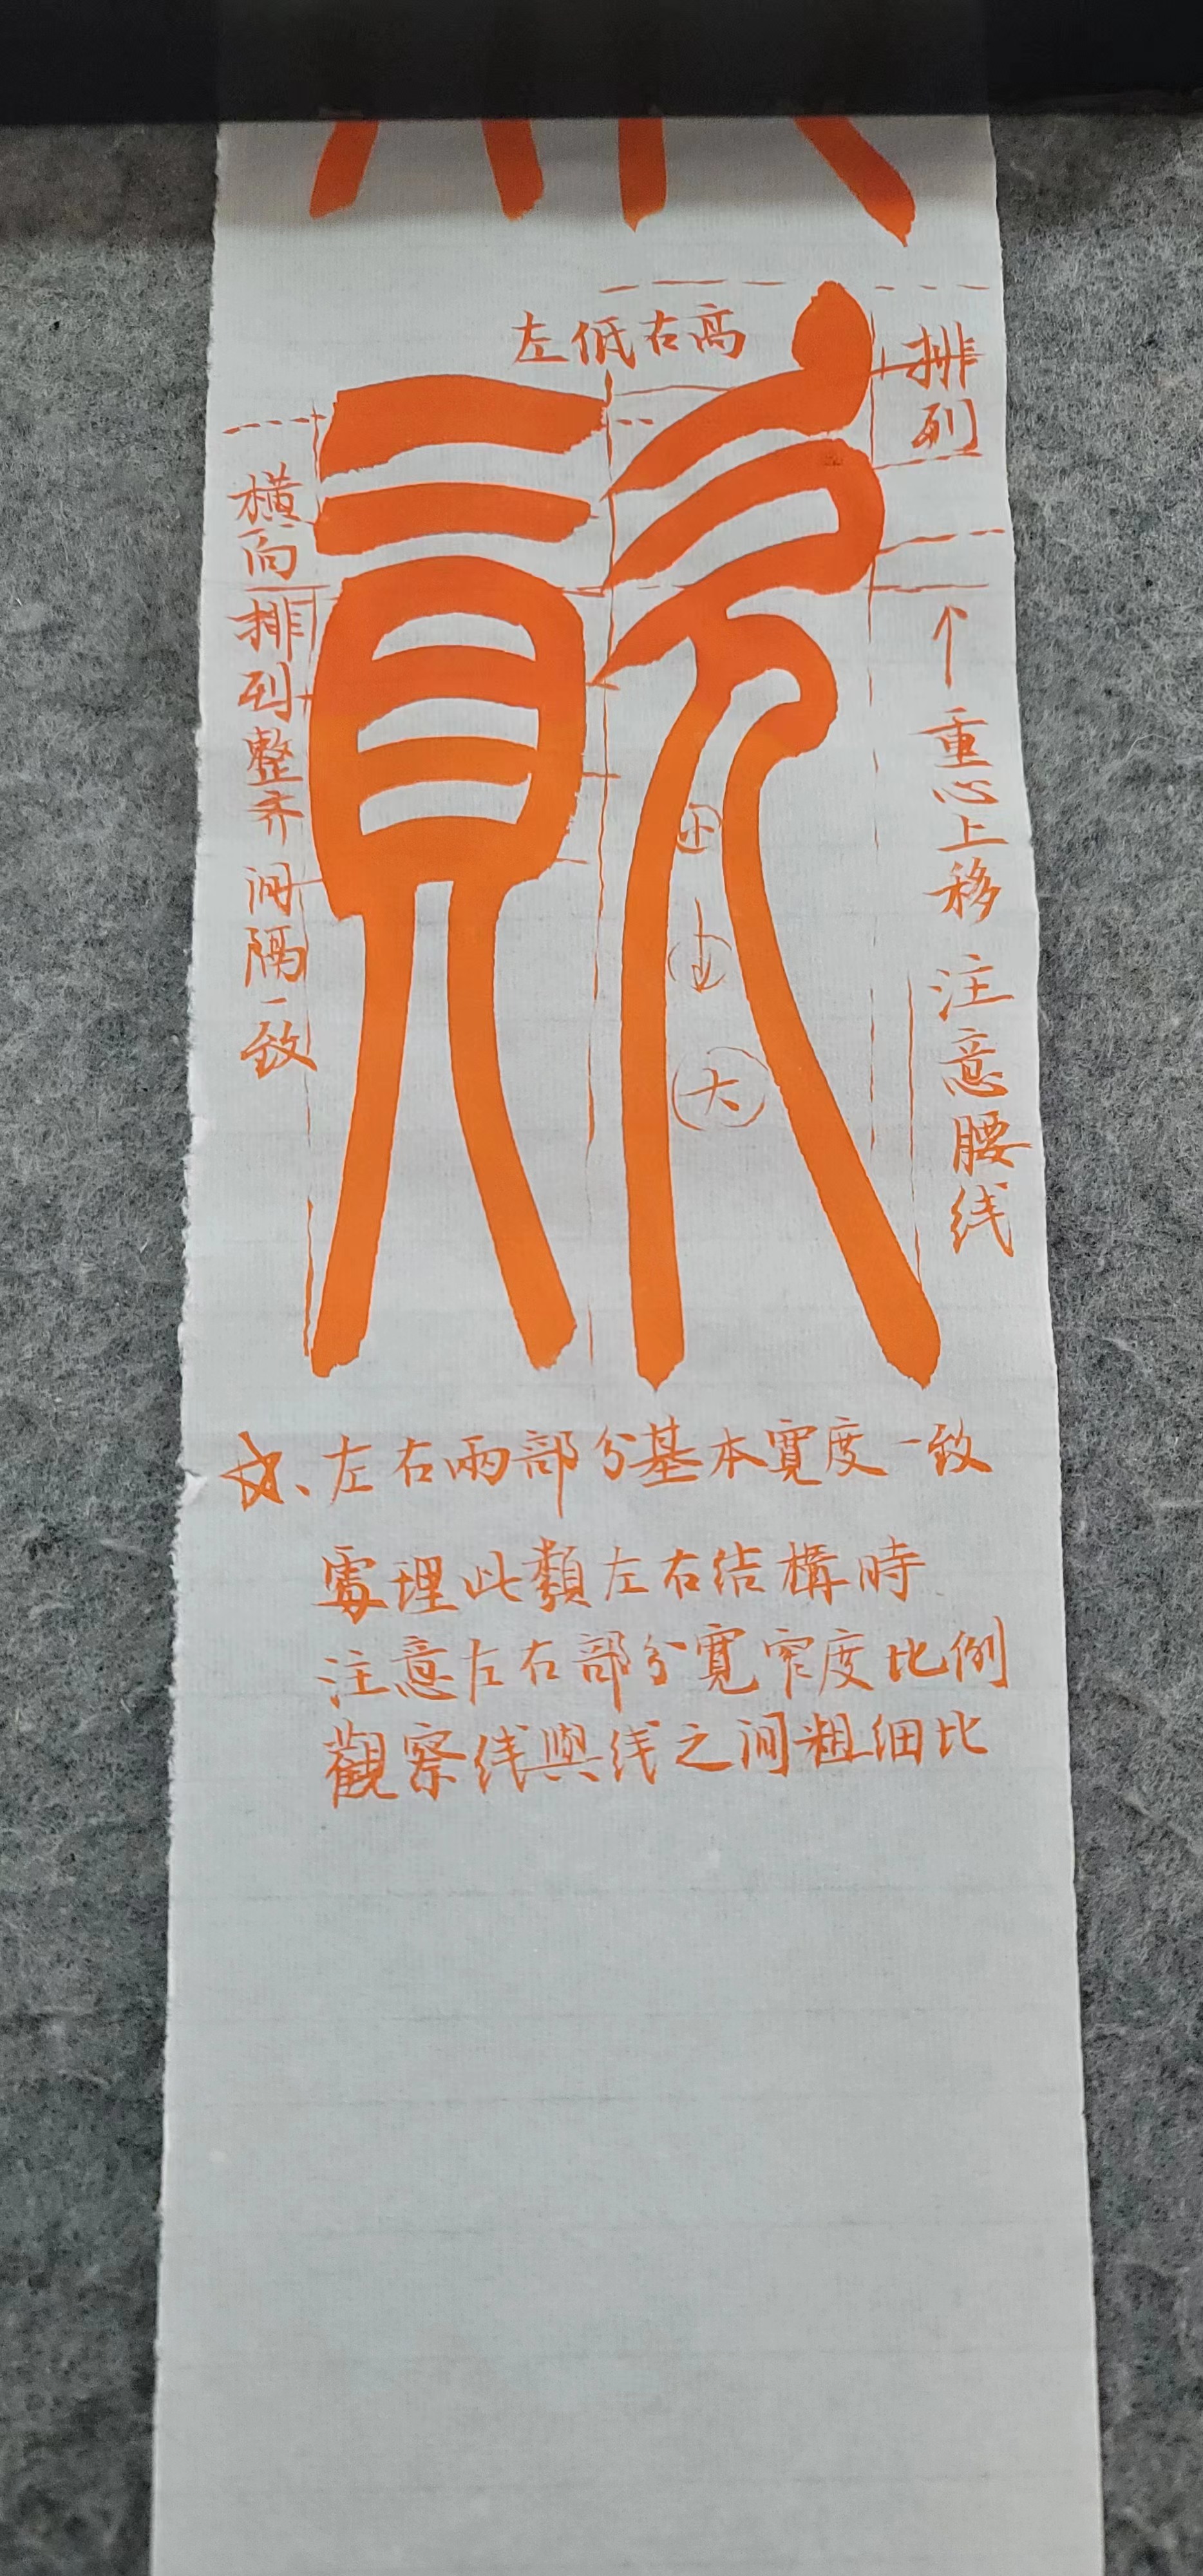 左低右高
排列
横向排列整齐间隔一致
重心上移注意腰线
大
☆、左右兩部分基本寬度一致
處理此類左右结構時
注意左右部分寬窄度比例
觀察线與线之间粗细比